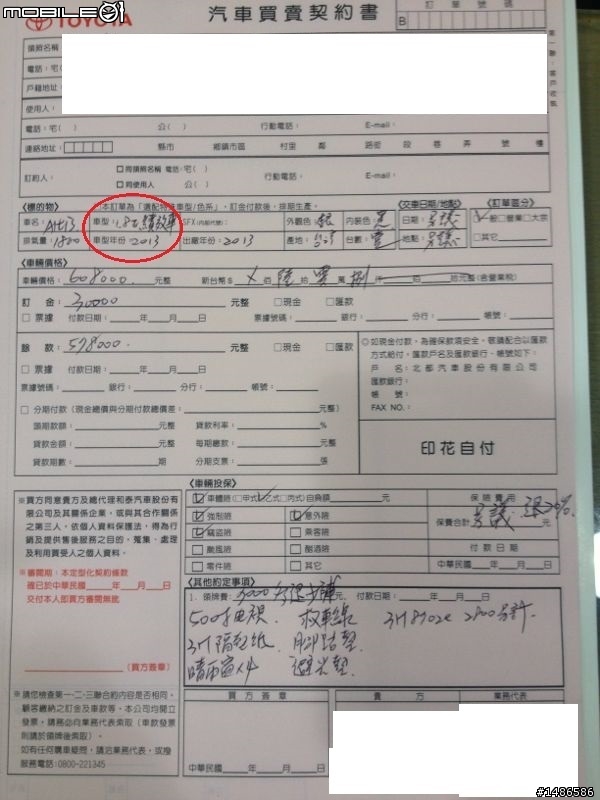 mobile01
TOYOTA
汽車買賣契約書
訂單號碼
B
領照名稱
電話：宅( )
戶籍地址
使用人：
電話：宅( ) 公( ) 行動電話： E-mail：
連絡地址： 縣市 鄉鎮市區 村里 鄰 路街 段 巷 弄 號 樓
訂約人： □同領照名稱 電話：宅( ) 公( ) 行動電話：
□同使用人 E-mail：
〈標的物〉 本訂單為「選配特殊車型/色系」，訂金付款後，排期生產。 〈交車日期/地點〉 〈訂單區分〉
車名：Altis 車型：1.8E SFX(內部代號)： 外觀色：銀 內裝色： 日期：另議 一般□營業□大宗
排氣量：1800 車型年份：2013 出廠年份：2013 產地： 台數：壹 地點：另議 □其它
〈車輛價格〉
車輛價格：608000 元整 新台幣$ X 佰 陸 拾 零 萬 捌 仟 佰 拾元整(含營業稅)
訂 金：30000 元整 □現金 □匯款
□票據 付款日期： 年 月 日 票據號碼： 銀行： 分行： 帳號：
餘 款：578000 元整 □現金 □匯款
□票據 付款日期： 年 月 日
票據號碼： 銀行： 分行： 帳號：
◎如現金付款，為確保款項安全，敬請配合以匯款
方式給付，匯款戶名及匯款銀行、帳號如下：
戶 名：北都汽車股份有限公司
匯款銀行：
帳 號：
FAX NO.：
□分期付款(現金總價與分期付款總價差： 元整)
頭期款額： 元整 貸款利率： %
貸款金額： 元整 每期總款： 元整
貸款期數： 期 分期支票： 張
印花自付
※買方同意貴方及總代理和泰汽車股份有
限公司及其關係企業，或與其合作關係
之第三人，依個人資料保護法，得為行
銷及提供售後服務之目的，蒐集、處理
及利用買受人之個人資料。
※審閱期：本定型化契約條款
確已於中華民國 年 月 日
交付本人即買方審閱無訛
(買方簽章)
〈車輛投保〉
車體險(□甲式 乙式 □丙式)自負額 元
強制險 意外險
竊盜險 □乘客險
□颱風險 □酗酒險
□零件險 □其它
保險費用
保費合計 另議 元
付款日期
中華民國 年 月 日
〈其他約定事項〉
1．領牌費：3000 元，付款日期： 年 月 日
3M 8702E 2800
3M隔熱紙 腳踏墊
晴雨窗 避光墊
※請您檢查第一二.三聯合約內容是否相同。
顧客繳納之訂金及車款等，本公司均開立
發票，請務必向業務代表索取(車款發票
則請於領牌後索取)。
如有任何購車疑問，請洽業務代表，或撥
服務電話:0800-221345
買方簽章 貴方 業務代表
中華民國 年 月 日
#1486586